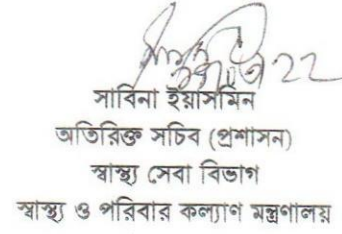 সাবিনা ইয়াসমিন
অতিরিক্ত সচিব (প্রশাসন)
স্বাস্থ্য সেবা বিভাগ
স্বাস্থ্য ও পরিবার কল্যাণ মন্ত্রণালয়